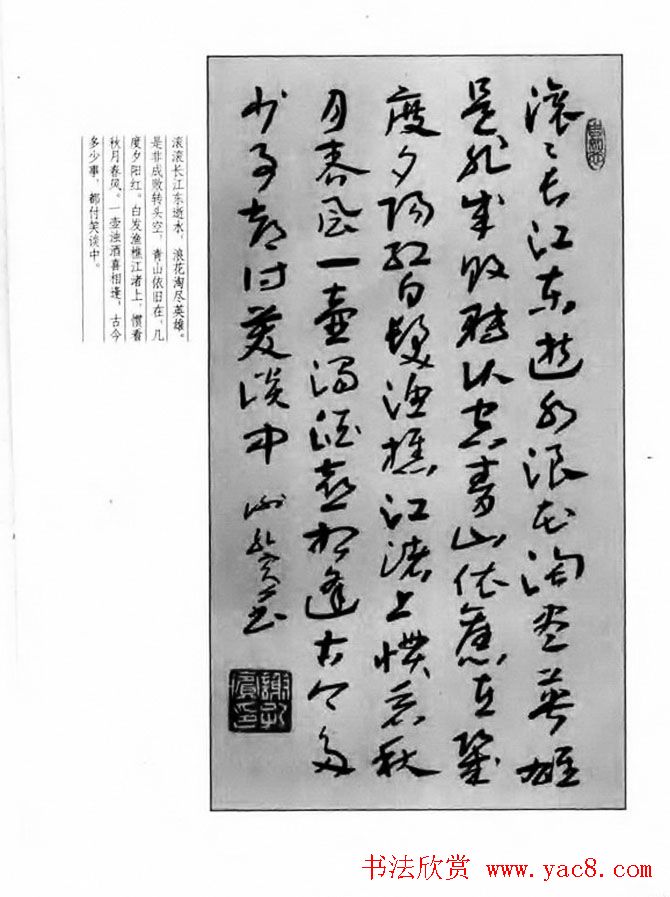 滚〻长江东逝水浪花淘尽英雄
是非成败转头空青山依舊在幾
度夕阳红白髮渔樵江渚上惯看秋
月春风一壶浊酒喜相逢古今多
少事都付笑谈中 谢孔宾书
謝孔賓印
滚滚长江东逝水，浪花淘尽英雄。
是非成败转头空，青山依旧在，几
度夕阳红。白发渔樵江渚上，惯看
秋月春风。一壶浊酒喜相逢，古今
多少事，都付笑谈中。
书法欣赏 www.yac8.com